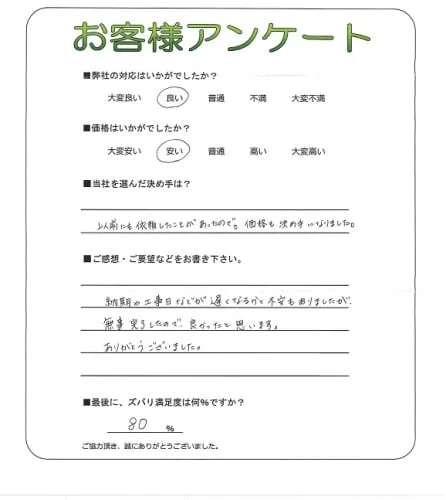 お客様アンケート
■弊社の対応はいかがでしたか？
大変良い 良い 普通 不満 大変不満
■価格はいかがでしたか？
大変安い 安い 普通 高い 大変高い
■当社を選んだ決め手は？
以前にも依頼したことがあったので。価格も決め手になりました。
■ご感想・ご要望などをお書き下さい。
納期や工事日などが遅くなるかと不安もありましたが、
無事完了したので、良かったと思います。
ありがとうございました。
■最後に、ズバリ満足度は何％ですか？
80 ％
ご協力頂き、誠にありがとうございました。